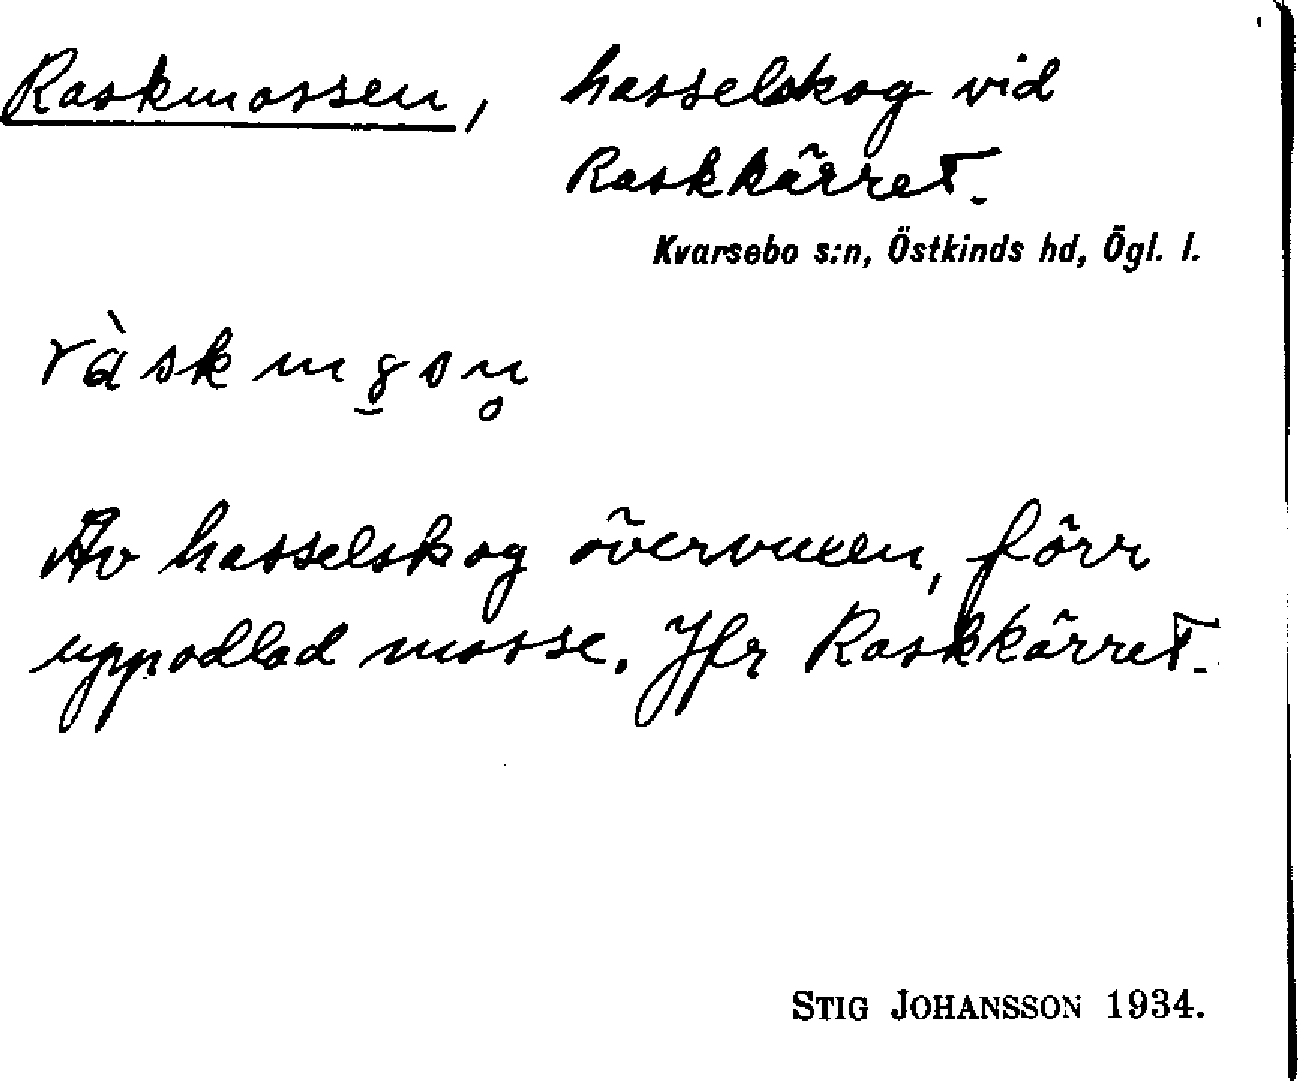 Raskmossen, hasselskog vid
Raskkärret.
Kvarsebo s:n, Östkinds hd, Ögl. l.
Av hasselskog övervuxen, förr
uppodlad mosse. Jfr Raskkärret.
STIG JOHANSSON 1934.